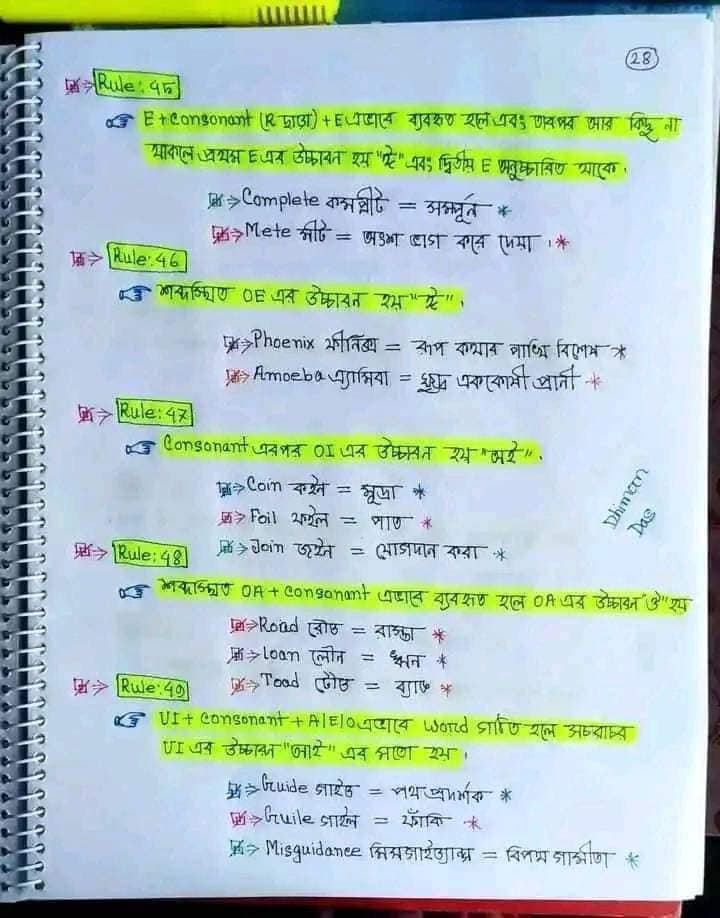 28
Rule: 45
E + Consonant (R ছাড়া) + E এভাবে ব্যবহৃত হলে এবং তারপর আর কিছু না
থাকলে প্রথম E এর উচ্চারন হয় "ঈ" এবং দ্বিতীয় E অনুচ্চারিত থাকে।
⇒ Complete কমপ্লীট = সম্পূর্ন *
⇒ Mete মীট = অংশ ভাগ করে দেয়া। *
⇒ Rule: 46
শব্দস্থিত OE এর উচ্চারন হয় "ঈ"।
⇒ Phoenix ফীনিক্স = রূপ কথার পাখি বিশেষ *
⇒ Amoeba এ্যামিবা = ক্ষুদ্র এককোষী প্রানী *
⇒ Rule: 47
Consonant এরপর OI এর উচ্চারন হয় "অই"।
⇒ Coin কইন = মুদ্রা *
⇒ Foil ফইল = পাত *
⇒ Join জইন = যোগদান করা *
Dhiman
Das
⇒ Rule: 48
শব্দস্থিত OA + Consonant এভাবে ব্যবহৃত হলে OA এর উচ্চারন "ও" হয়
⇒ Road রোড = রাস্তা *
⇒ Loan লোন = ঋন *
⇒ Toad টোড = ব্যাঙ *
⇒ Rule: 49
UI + Consonant + A/E/O এভাবে Word গঠিত হলে সচরাচর
UI এর উচ্চারন "আই" এর মতো হয়।
⇒ Guide গাইড = পথ প্রদর্শক *
⇒ Guile গাইল = ফাঁকি *
⇒ Misguidance মিসগাইড্যান্স = বিপথ গামীতা *